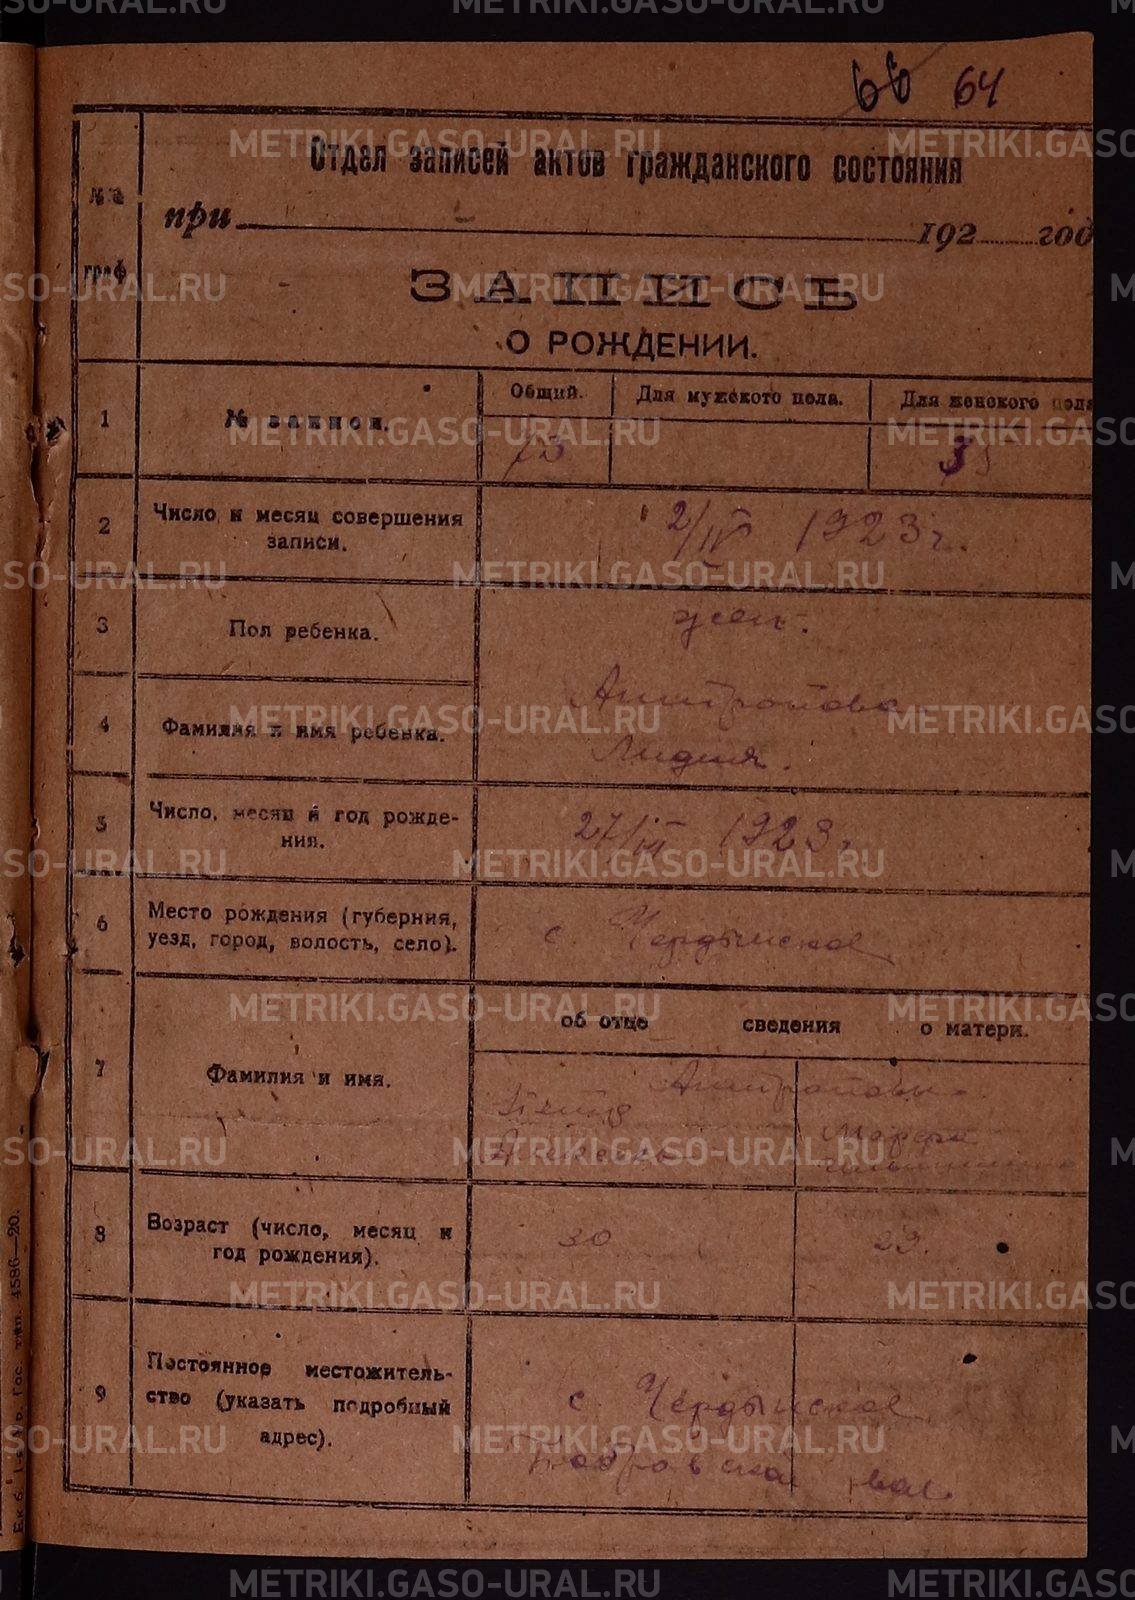 66 64
Отдел записей актов гражданского состояния
при 192 год
№№
граф.
ЗАПИСЬ
О РОЖДЕНИИ.
1
№ записи.
Общий. Для мужского пола. Для женского пола
73 35
2
Число и месяц совершения
записи.
2/IV 1923 г.
3
Пол ребенка.
жен.
4
Фамилия и имя ребенка.
Антропова
Лидия.
5
Число, месяц и год рожде-
ния.
27/III 1923 г.
6
Место рождения (губерния,
уезд, город, волость, село).
с. Чердынское
об отце сведения о матери.
7
Фамилия и имя.
Антроповы
Марфа
8
Возраст (число, месяц и
год рождения).
30 29.
9
Постоянное местожитель-
ство (указать подробный
адрес).
с. Чердынское
Бобровской вол.
Екб. 1-я Гос. тип. 4586—20.
METRIKI.GASO-URAL.RU